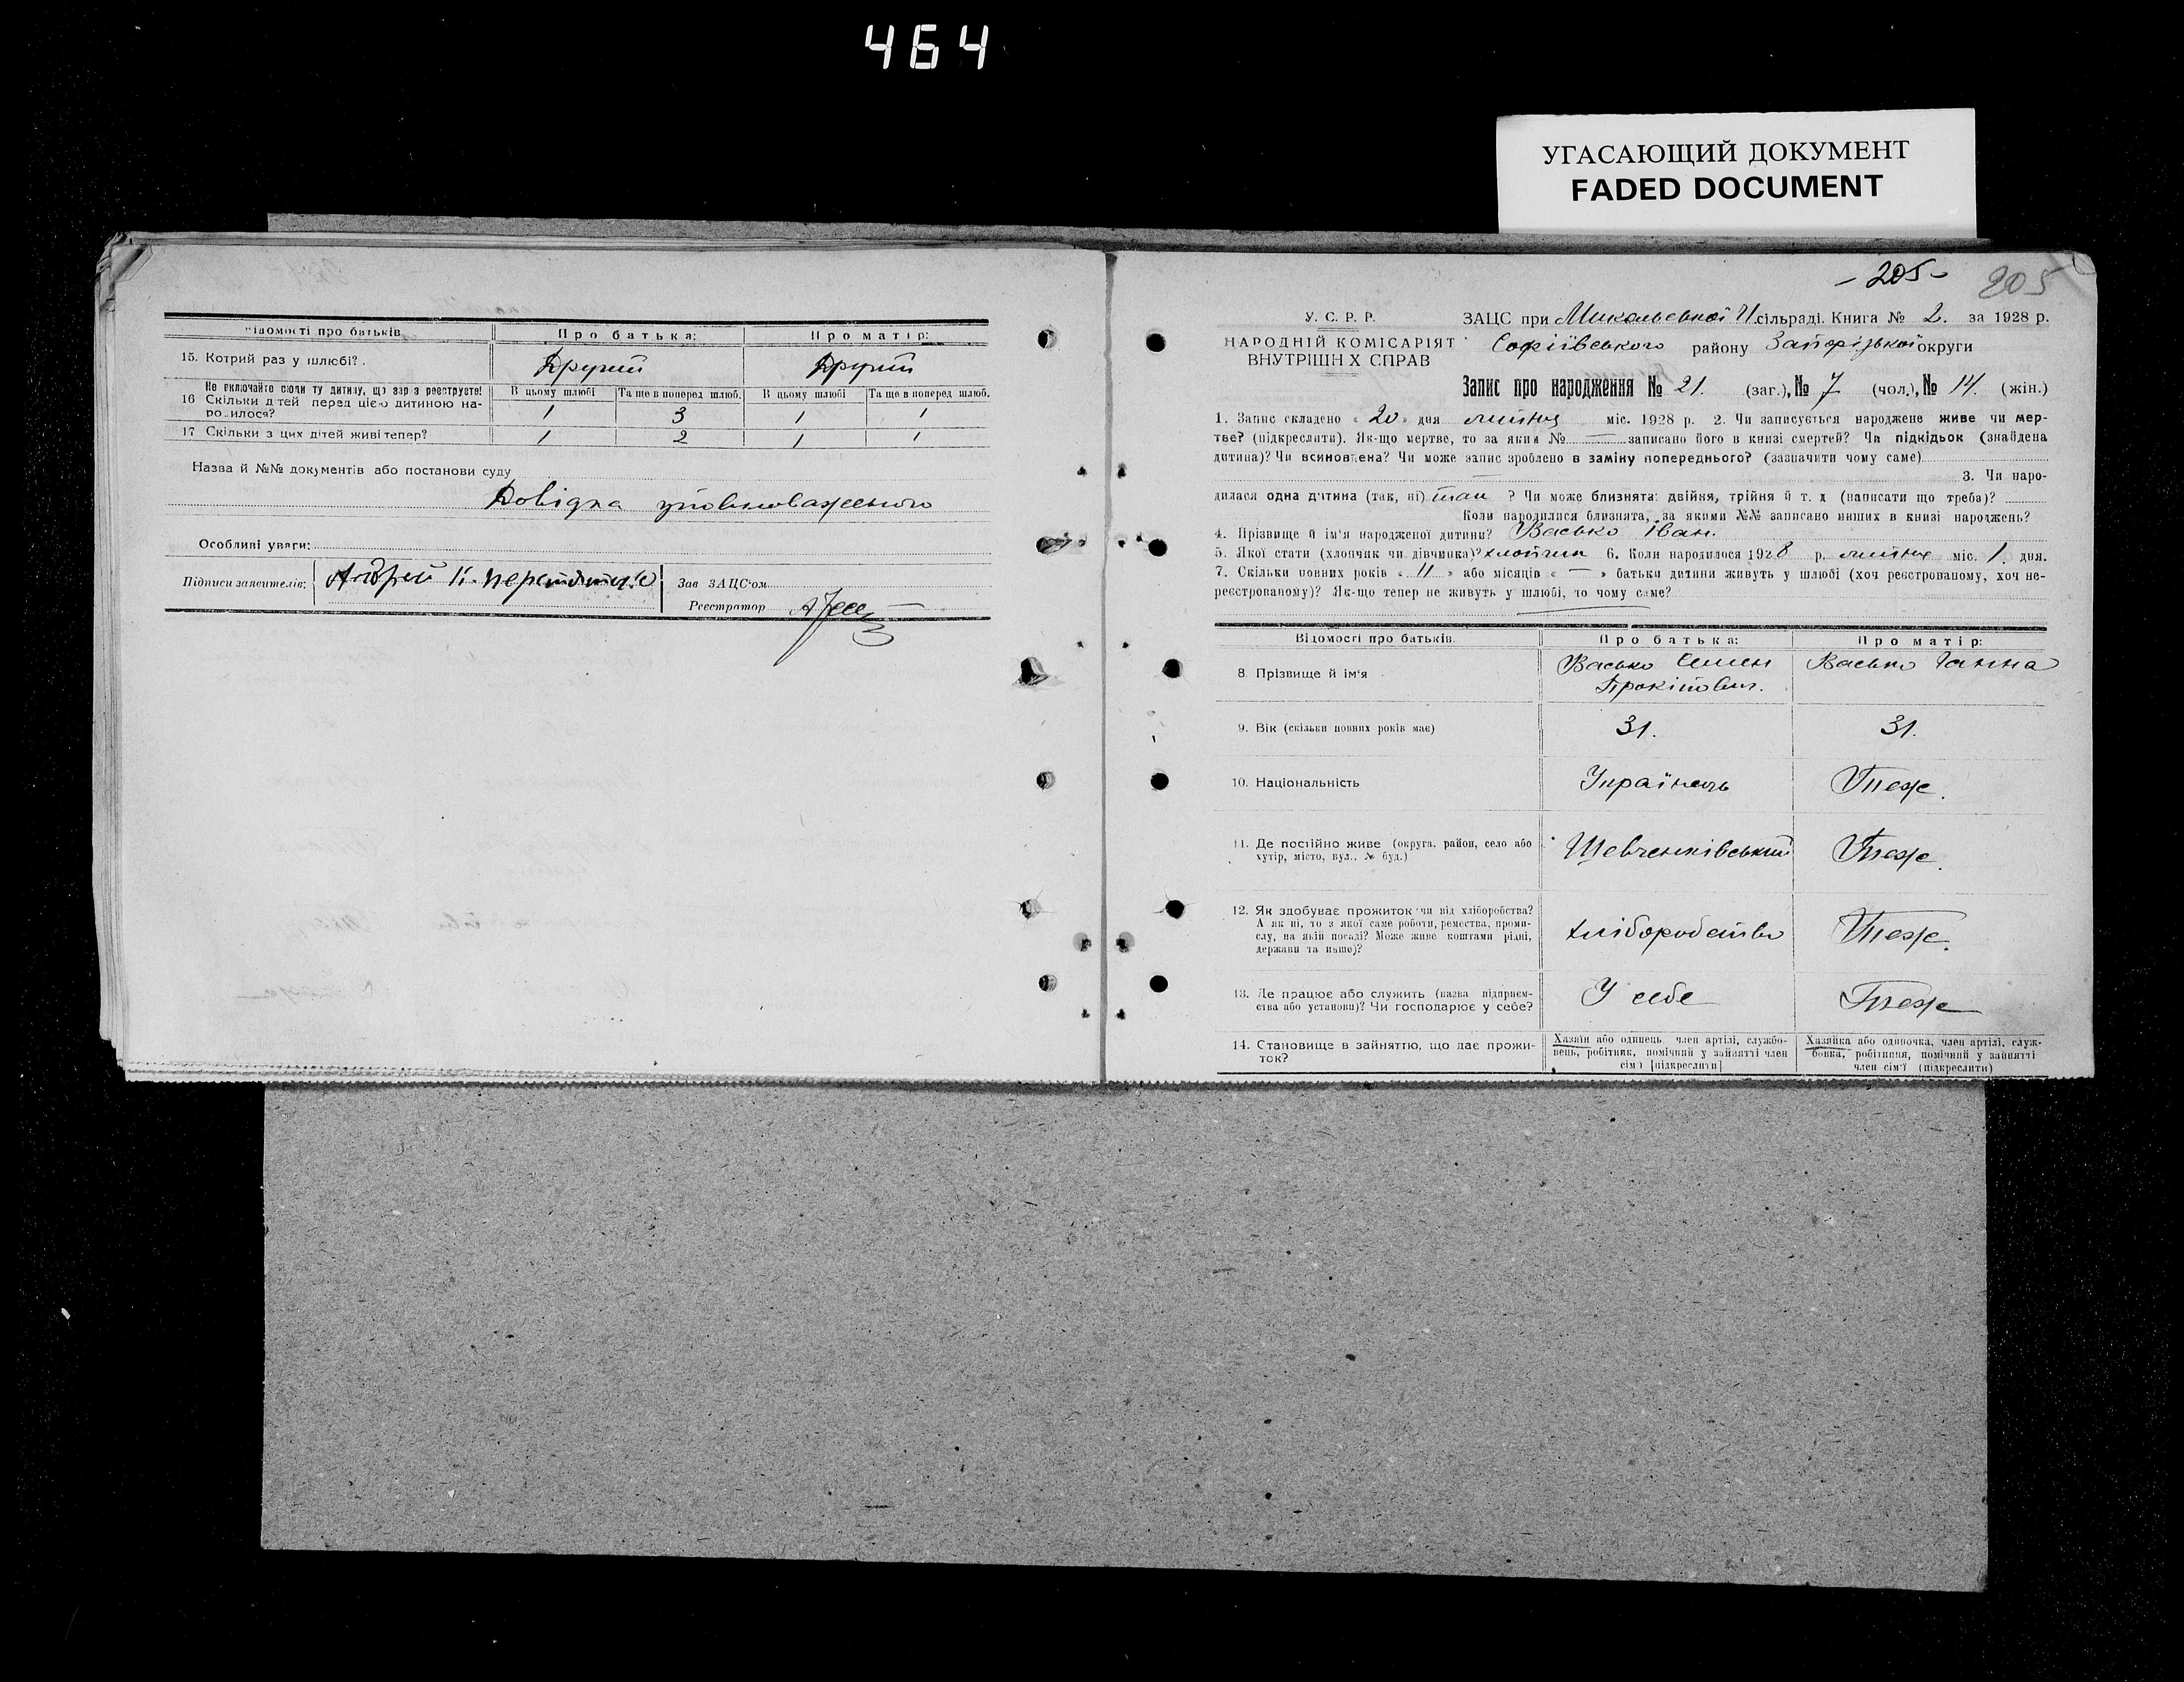 464
УГАСАЮЩИЙ ДОКУМЕНТ
FADED DOCUMENT
Відомості про батьків
Про батька:
Про матір:
15. Котрий раз у шлюбі?
Другий
Другий
Не включайте сюди ту дитину, що зараз реєструєте!
16 Скільки дітей перед цією дитиною на-
родилося?
В цьому шлюбі
Та ще в поперед шлюб.
В цьому шлюбі
Та ще в поперед шлюб.
1
3
1
1
17 Скільки з цих дітей живі тепер?
1
2
1
1
Назва й №№ документів або постанови суду
Довідка уповноваженого
Особливі уваги:
Підписи заявителів:
Андрей
Зав ЗАЦС'ом
Реєстратор
- 205 -
205
У. С. Р. Р.
НАРОДНІЙ КОМІСАРІЯТ
ВНУТРІШНІХ СПРАВ
ЗАЦС при сільраді. Книга № 2. за 1928 р.
Софіївського району Запорізької округи
Запис про народження № 21. (заг.), № 7 (чол.), № 14. (жін.)
1. Запис складено « 20 » дня липня міс. 1928 р. 2. Чи записується народжене живе чи мер-
тве? (підкреслити). Як-що мертве, то за яким № — записано його в книзі смертей? Чи підкідьок (знайдена
дитина)? Чи всиновлена? Чи може запис зроблено в заміну попереднього? (зазначити чому саме)
— 3. Чи наро-
дилася одна дитина (так, ні) так ? Чи може близнята: двійня, трійня й т. д (написати що треба)?
Коли народилися близнята, за якими №№ записано инших в книзі народжень?
4. Прізвище й ім'я народженої дитини? Васько Іван.
5. Якої стати (хлопчик чи дівчинка)? хлопчик 6. Коли народилося 1928 р. липня міс. 1. дня.
7. Скільки повних років « 11 » або місяців « — » батьки дитини живуть у шлюбі (хоч реєстрованому, хоч не-
реєстрованому)? Як-що тепер не живуть у шлюбі, то чому саме?
Відомості про батьків.
Про батька:
Про матір:
8. Прізвище й ім'я
Васько Семен
Прокіпович.
Васько Ганна
9. Вік (скільки повних років має)
31.
31.
10. Національність
Українець
Теж.
11. Де постійно живе (округа, район, село або
хутір, місто, вул., № буд.)
Шевченківський
Теж.
12. Як здобуває прожиток чи від хліборобства?
А як ні, то з якої саме роботи, ремества, проми-
слу, на якій посаді? Може живе коштами рідні,
держави та инше)?
хліборобство
Теж.
13. Де працює або служить (назва підприєм-
ства або установи)? Чи господарює у себе?
У себе
Теж
14. Становище в зайнятю, що дає прожи-
ток?
Хазяїн або одинець, член артілі, службо-
вець, робітник, помічний у зайнятті член
сім'ї [підкреслити]
Хазяйка або одиночка, член артілі, служ-
бовка, робітниця, помічний у зайнятті
член сім'ї (підкреслити)